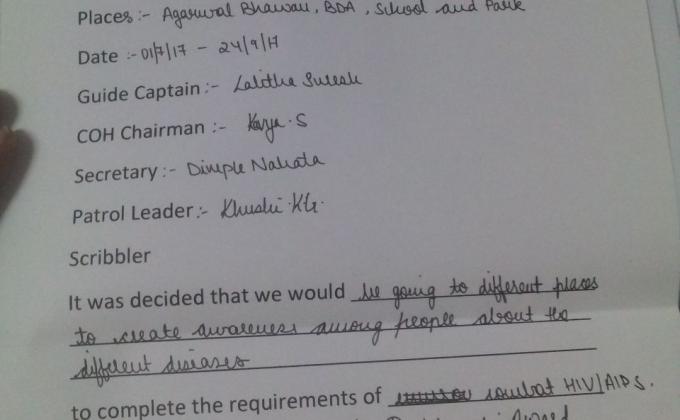 Places:- Agarwal Bhawan, BDA, School and Park
Date :- 01/7/17 - 24/9/17
Guide Captain:- Lalitha Suresh
COH Chairman :- Kavya.S
Secretary:- Dimple Nahata
Patrol Leader:- Khushi.Kh.
Scribbler
It was decided that we would be going to different places
to create awareness among people about the
different diseases
to complete the requirements of combat HIV/AIDS.